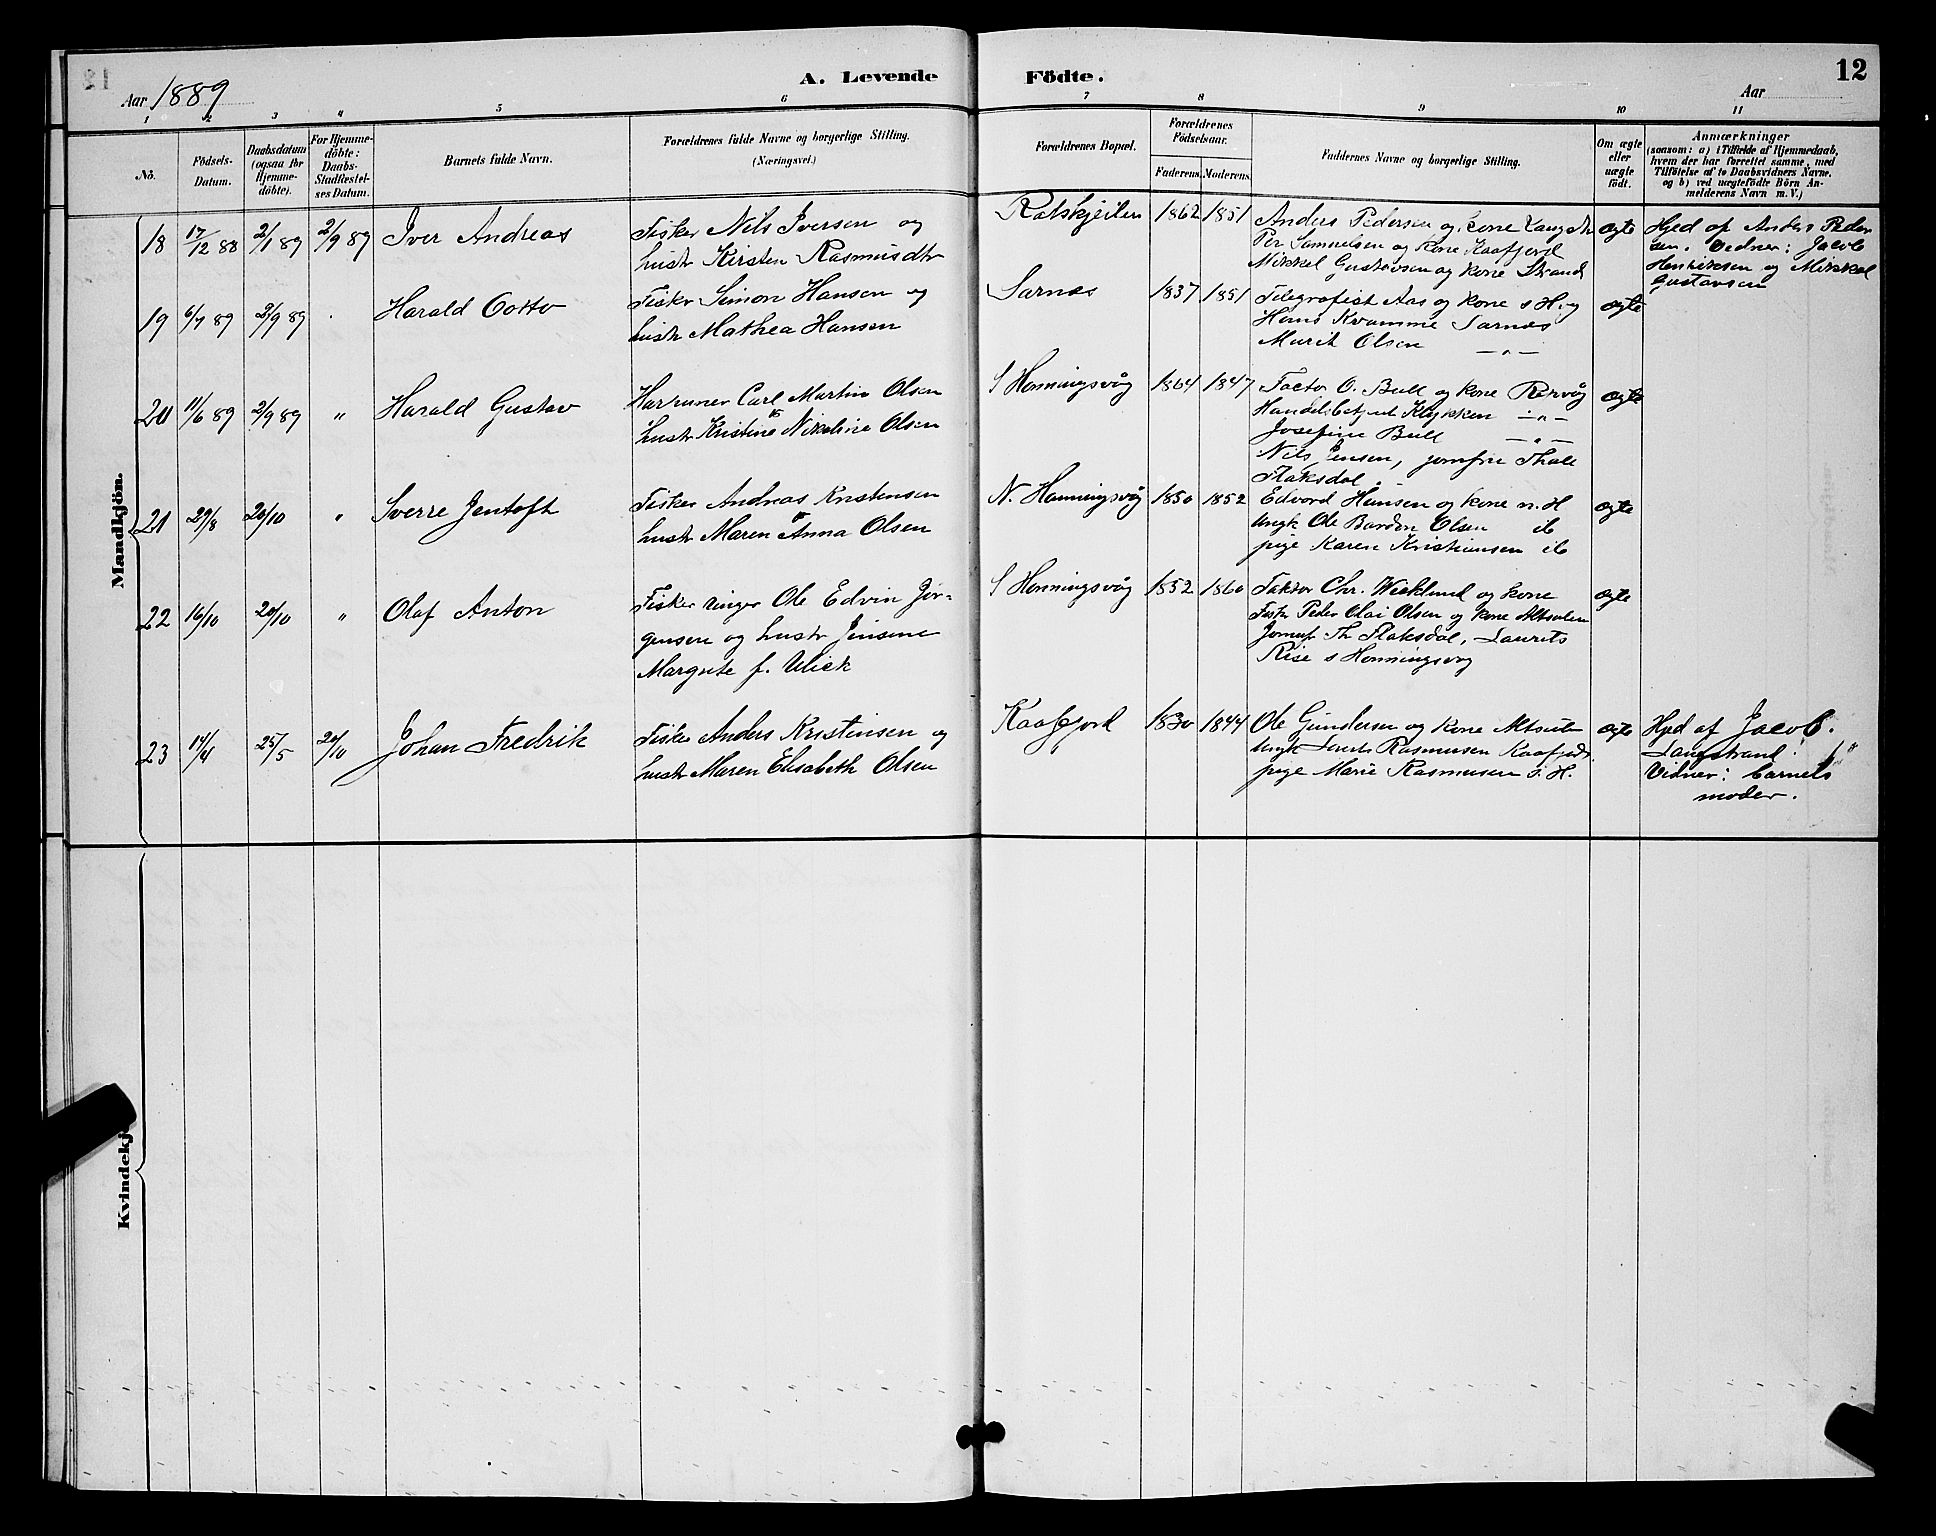 A. Levende Födte.
12
Aar 1889
Aar
1 2 3 4 5 6 7 8 9 10 11
No.
Födsels-Datum.
Daabsdatum (ogsaa for Hjemme-döbte).
For Hjemme-döbte: Daabs-Stadfæstel-ses Datum.
Barnets fulde Navn.
Forældrenes fulde Navne og borgerlige Stilling. (Næringsvei.)
Forældrenes Bopæl.
Forældrenes Födselsaar.
Faderens. Moderens.
Faddernes Navne og borgerlige Stilling.
Om ægte eller uægte födt.
Anmærkninger
(saasom: a) i Tilfælde af Hjemmedaab, hvem der har forrettet samme, med Tilföielse af to Daabsvidners Navne. og b) ved uægtefödte Börn Anmelderens Navn m. V.)
Mandkjön.
18 17/12 88 2/1 89 2/9 89 Iver Andreas
Fisker Nils Iversen og
hustr Kirsten Rasmusdtr
1862 1851
Anders Pedersen og kone Langstr
Per Samuelsen og kone Kaafjord
Mikkel Gustavsen og kone Strand
ægte
Hjed af Anders Peder
sen. Vidner: Jacob
Henriksen og Mikkel
Gustavsen
19 6/7 89 2/9 89 Harald Ootto
Fiskr Simon Hansen og
hustr Mathea Hansen
Sarnes 1837 1851
Telegrafist Aas og kone s H. og
Hans Kvamme Sarnes
Marit Olsen —„—
ægte
20 11/6 89 2/9 89 „ Harald Gustav
Carl Martin Olsen
hustr Kristine Nikoline Olsen
S Honningsvåg 1864 1847
Factor O. Bull og kone
Handelsbetjent Klykken —„—
Josefine Bull —„—
Nils Jensen, jomfru Thale
Flaksdal.
ægte
21 29/8 20/10 „ Sverre Jentoft
Fisker Andreas Kristensen
hustr Maren Anna Olsen
N. Honningsvåg 1850 1852
Edvard Hansen og kone n. H
Ungk Ole Bardon Olsen ib
pige Karen Kristiansen ib
ægte
22 16/10 20/10 „ Olaf Anton
Fisker ringer Ole Edvin Jör-
gensen og hustr Jensine
Margrete f. Wick
S Honningsvåg 1852 1860
Faktor Chr. Wicklund og kone
Fiskr Peder Olai Olsen og kone
Jomfr Th Flaksdal, Laurits
Rise s Honningsvog
ægte
23 14/4 25/5 20/10 Johan Fredrik
Fisker Anders Kristensen og
hustr Maren Elisabeth Olsen
Kaafjord 1830 1844
Ole Gundersen og kone
Ungk Rasmussen Kaafjord
pige Marie Rasmussen s. H.
ægte
Hjed af Jacob.
Langstrand.
Vidner: barnets
moder.
Kvindekj